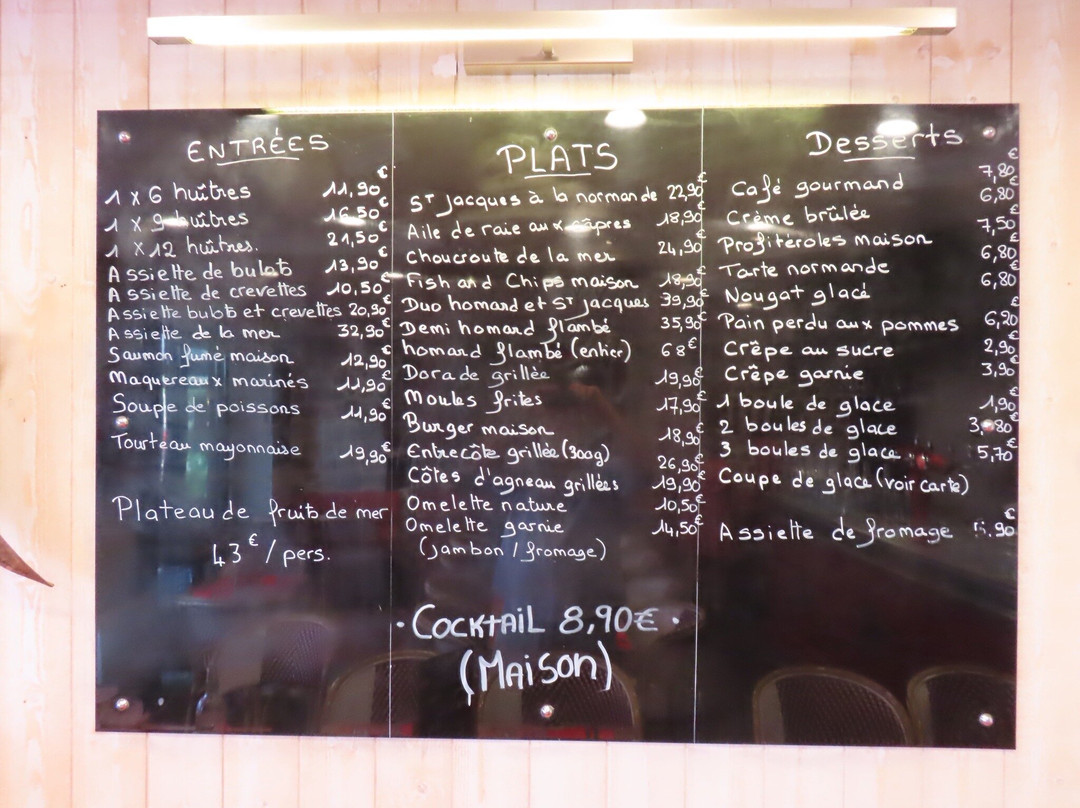 ENTRÉES
1 x 6 huîtres 11,90€
1 x 9 huîtres 16,50€
1 x 12 huîtres. 21,50€
Assiette de bulots 13,90€
Assiette de crevettes 10,50€
Assiette bulots et crevettes 20,90€
Assiette de la mer 32,90€
Saumon fumé maison 12,90€
Maquereaux marinés 11,90€
Soupe de poissons 11,90€
Tourteau mayonnaise 19,90€
Plateau de fruits de mer
43€ / pers.
PLATS
ST Jacques à la normande 22,90€
Aile de raie aux câpres 18,90€
Choucroute de la mer 24,90€
Fish and Chips maison 18,90€
Duo homard et ST Jacques 39,90€
Demi homard flambé 35,90€
homard flambé (entier) 68€
Dorade grillée 19,90€
Moules frites 17,90€
Burger maison 18,90€
Entrecôte grillée (300g) 26,90€
Côtes d'agneau grillées 19,90€
Omelette nature 10,50€
Omelette garnie 14,50€
(jambon / fromage)
• COCKTAIL 8,90€ •
(MAISON)
Desserts
Café gourmand 7,80€
Crème brûlée 6,80€
Profitéroles maison 7,50€
Tarte normande 6,80€
Nougat glacé 6,80€
Pain perdu aux pommes 6,20€
Crêpe au sucre 2,90€
Crêpe garnie 3,90€
1 boule de glace 1,90€
2 boules de glace 3,80€
3 boules de glace 5,70€
Coupe de glace (voir carte)
Assiette de fromage